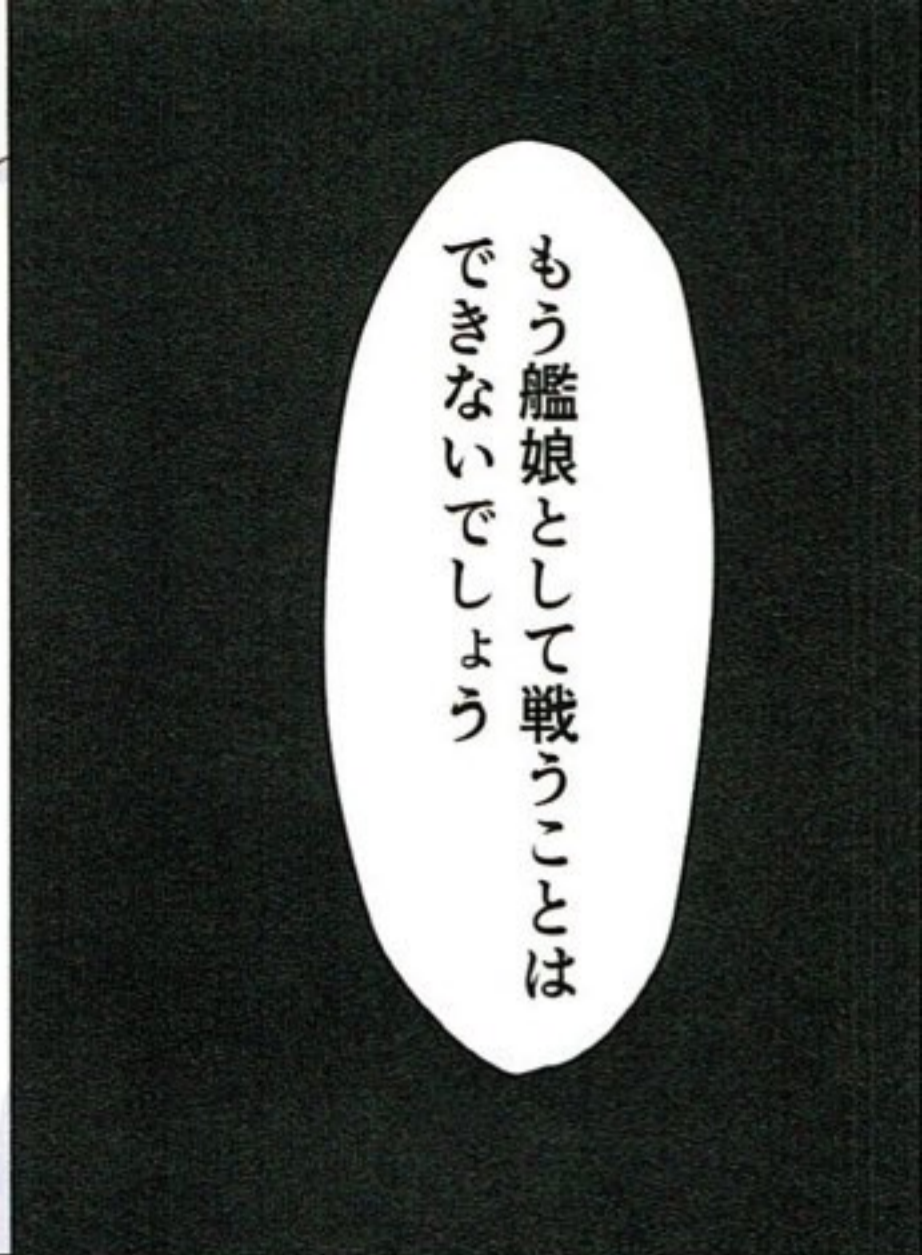 もう艦娘として戦うことは
できないでしょう